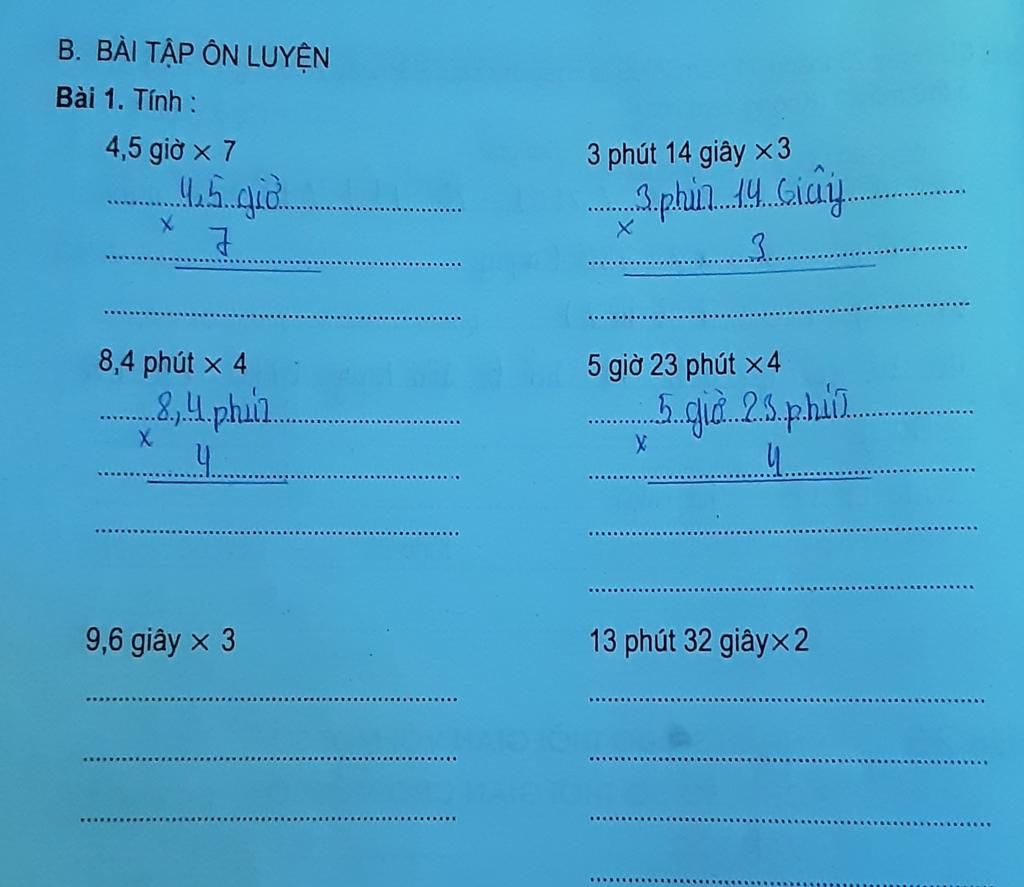 B. BÀI TẬP ÔN LUYỆN
Bài 1. Tính :
4,5 giờ × 7
4,5 giờ
×
7
3 phút 14 giây ×3
3 phút 14 Giây
×
3
8,4 phút × 4
8,4 phút
×
4
5 giờ 23 phút ×4
5 giờ 23 phút
×
4
9,6 giây × 3
13 phút 32 giây×2